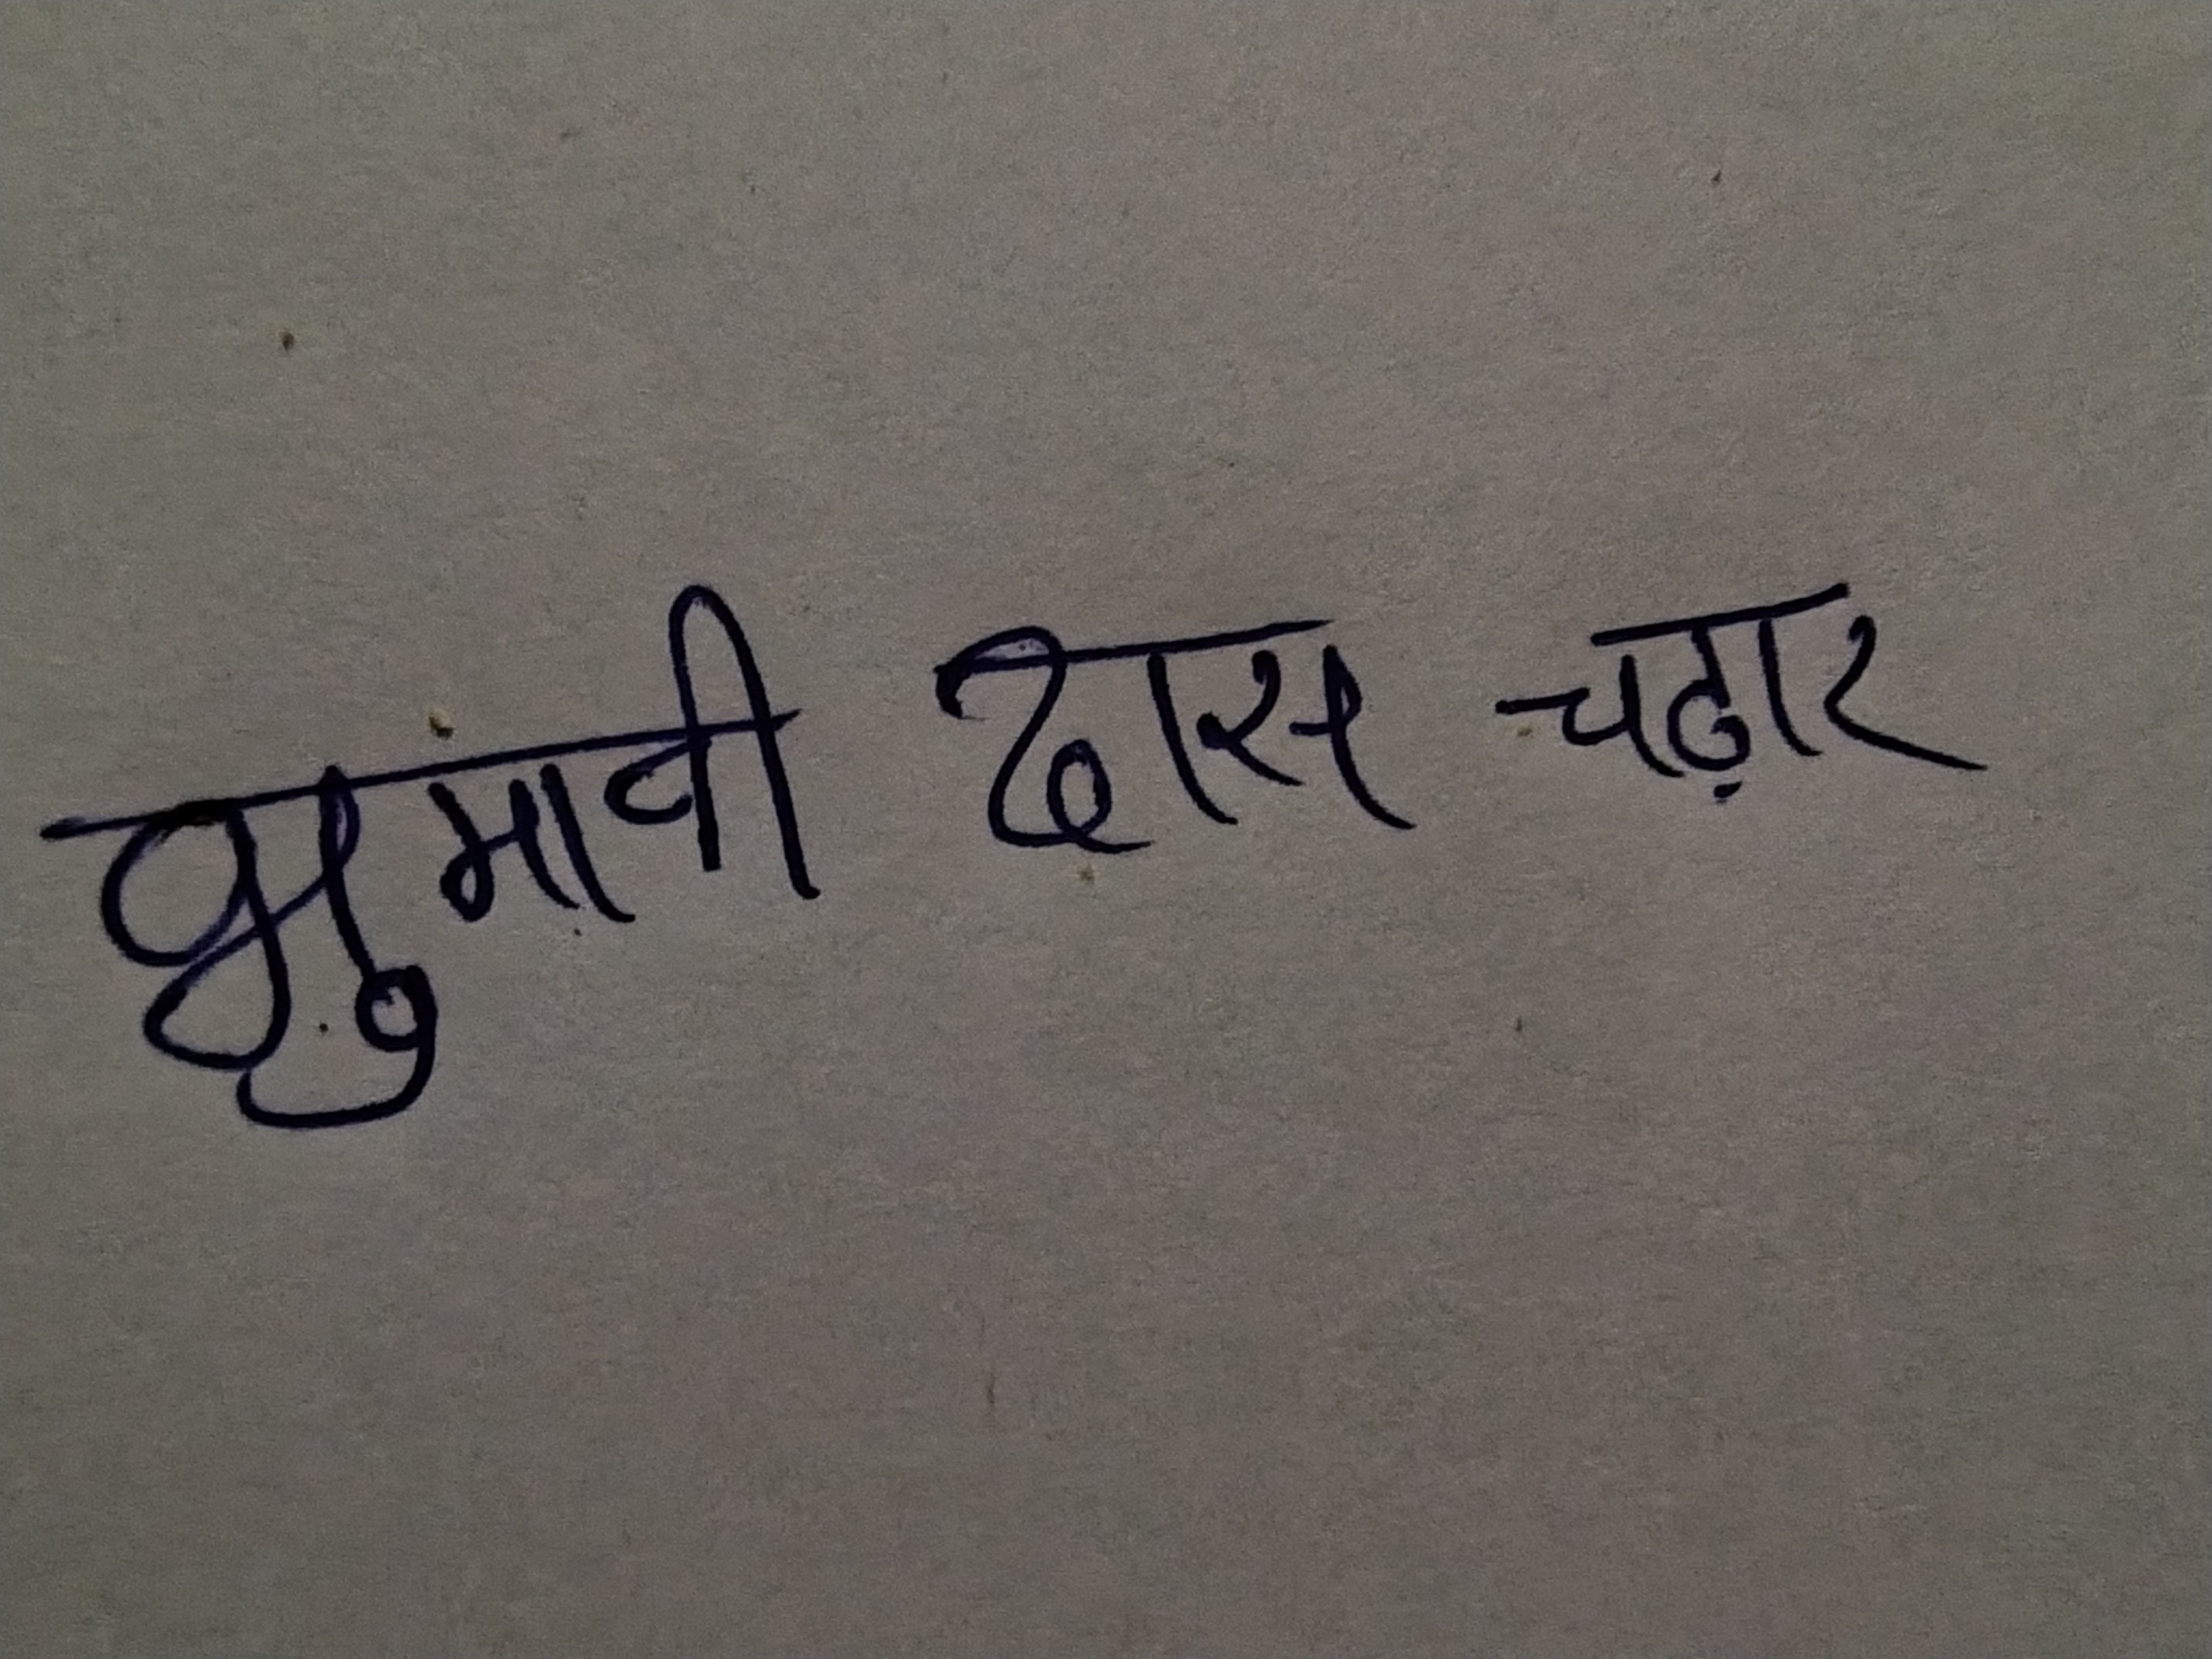 झुमावी दास चढ़ार